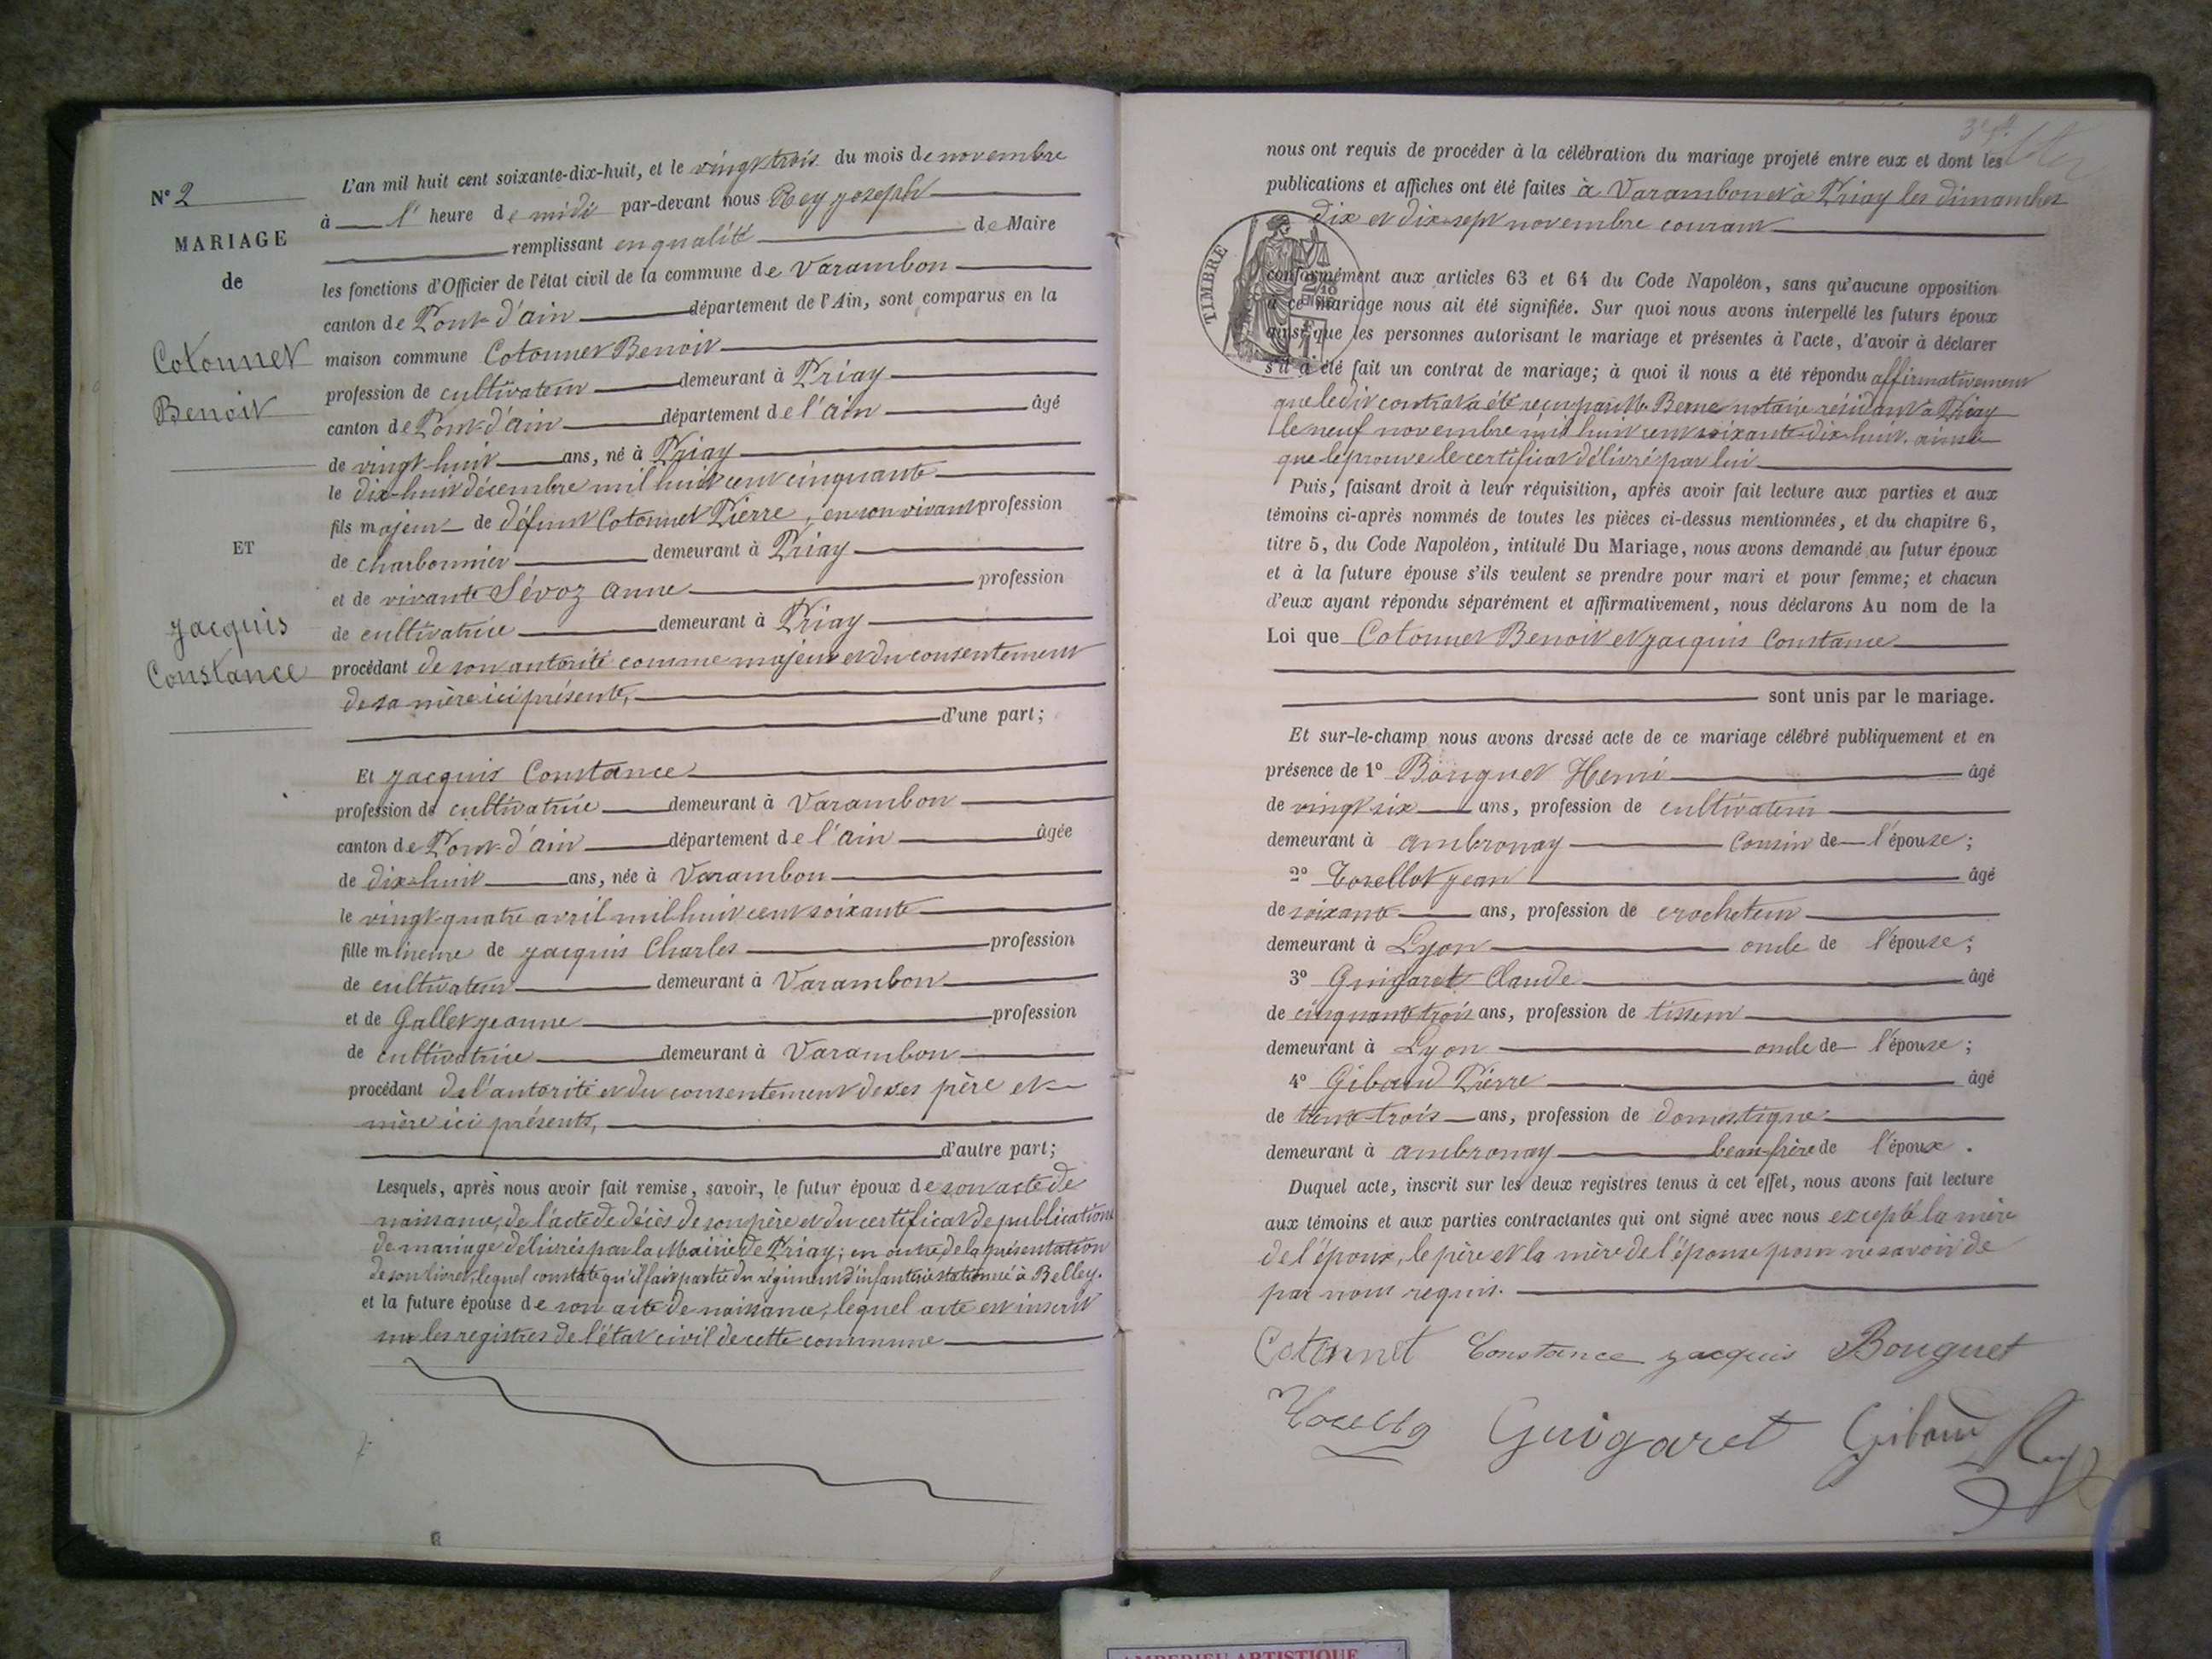 N° 2
MARIAGE
de
Cotonnet
Benoit
ET
Jacquis
Constance
L'an mil huit cent soixante-dix-huit, et le vingt trois du mois de novembre
à l' heure de midi par-devant nous Rey Joseph
remplissant en qualité de Maire
les fonctions d'Officier de l'état civil de la commune de Varambon
canton de Pont-d'ain département de l'Ain, sont comparus en la
maison commune Cotonnet Benoit
profession de cultivateur demeurant à Priay
canton de Pont-d'ain département de l'ain âgé
de vingt-huit ans, né à Priay
le dix-huit décembre mil huit cent cinquante
fils majeur de défunt Cotonnet Pierre, en son vivant profession
de charbonnier demeurant à Priay
et de vivante Sévoz Anne profession
de cultivatrice demeurant à Priay
procédant de son autorité comme majeur et du consentement
de sa mère ici présente,
d'une part;
Et Jacquis Constance
profession de cultivatrice demeurant à Varambon
canton de Pont-d'ain département de l'ain âgée
de dix-huit ans, née à Varambon
le vingt-quatre avril mil huit cent soixante
fille mineure de Jacquis Charles profession
de cultivateur demeurant à Varambon
et de Gallet Jeanne profession
de cultivatrice demeurant à Varambon
procédant de l'autorité et du consentement de ses père et
mère ici présents,
d'autre part;
Lesquels, après nous avoir fait remise, savoir, le futur époux de son acte de
naissance, de l'acte de décès de son père et du certificat de publications
de mariage délivrés par la Mairie de Priay; en outre de la présentation
de son livret, lequel constate qu'il fait partie du régiment d'infanterie stationné à Belley.
et la future épouse de son acte de naissance, lequel acte est inscrit
sur les registres de l'état civil de cette commune
nous ont requis de procéder à la célébration du mariage projeté entre eux et dont les
publications et affiches ont été faites à Varambon et à Priay les dimanches
dix et dix-sept novembre courant
TIMBRE
conformément aux articles 63 et 64 du Code Napoléon, sans qu'aucune opposition
à ce mariage nous ait été signifiée. Sur quoi nous avons interpellé les futurs époux
ainsi que les personnes autorisant le mariage et présentes à l'acte, d'avoir à déclarer
s'il a été fait un contrat de mariage; à quoi il nous a été répondu affirmativement
que le dit contrat a été reçu par Me Berne notaire résidant à Priay
le neuf novembre mil huit cent soixante-dix-huit, ainsi
que le prouve le certificat délivré par lui
Puis, faisant droit à leur réquisition, après avoir fait lecture aux parties et aux
témoins ci-après nommés de toutes les pièces ci-dessus mentionnées, et du chapitre 6,
titre 5, du Code Napoléon, intitulé Du Mariage, nous avons demandé au futur époux
et à la future épouse s'ils veulent se prendre pour mari et pour femme; et chacun
d'eux ayant répondu séparément et affirmativement, nous déclarons Au nom de la
Loi que Cotonnet Benoit et Jacquis Constance
sont unis par le mariage.
Et sur-le-champ nous avons dressé acte de ce mariage célébré publiquement et en
présence de 1° Bouguet Henri âgé
de vingt six ans, profession de cultivateur
demeurant à Ambronay Cousin de l'épouse;
2° Torellot Jean âgé
de soixante ans, profession de crocheteur
demeurant à Lyon oncle de l'épouse;
3° Guigaret Claude âgé
de cinquante trois ans, profession de tisseur
demeurant à Lyon oncle de l'épouse;
4° Giboud Pierre âgé
de trente-trois ans, profession de domestique
demeurant à Ambronay beau-frère de l'époux.
Duquel acte, inscrit sur les deux registres tenus à cet effet, nous avons fait lecture
aux témoins et aux parties contractantes qui ont signé avec nous excepté la mère
de l'époux, le père et la mère de l'épouse pour ne savoir de
par nous requis.
Cotonnet Constance Jacquis Bouguet
Guigaret Giboud Rey
AMBERIEU ARTISTIQUE